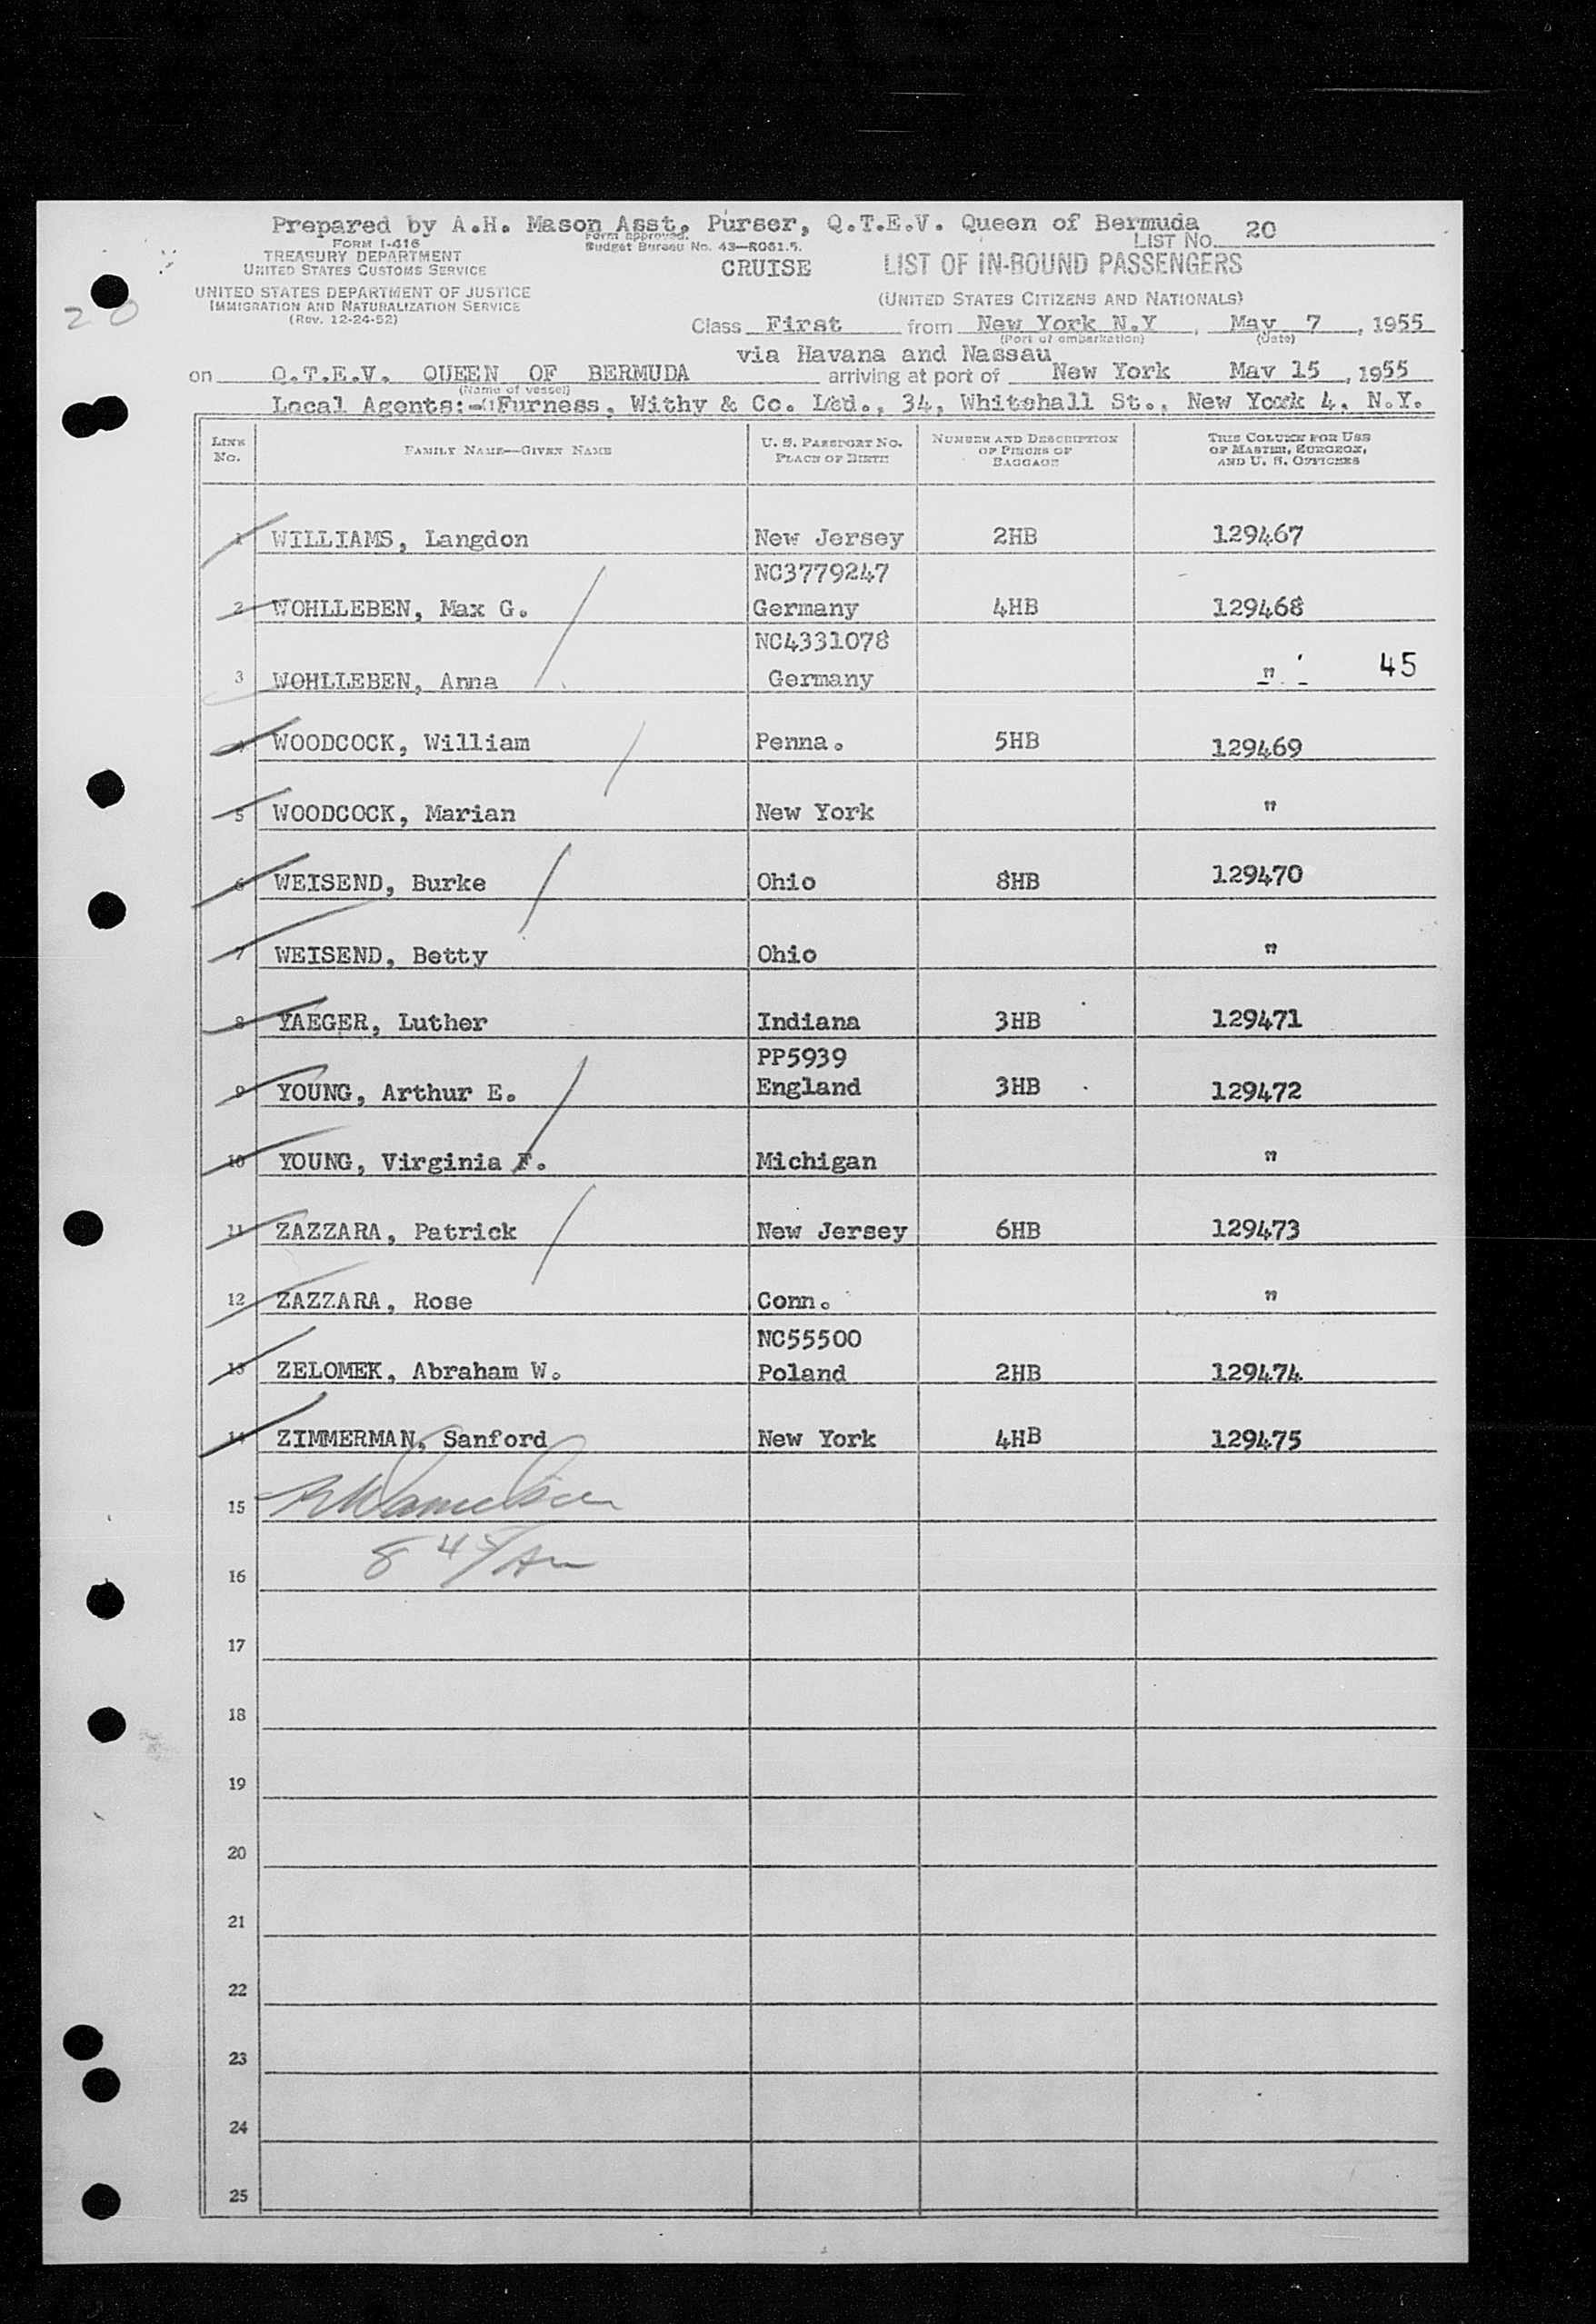 Prepared by A.H. Mason Asst. Purser, Q.T.E.V. Queen of Bermuda
LIST No. 20
FORM I-416
TREASURY DEPARTMENT
UNITED STATES CUSTOMS SERVICE
Form approved.
Budget Bureau No. 43—R061.5.
CRUISE
LIST OF IN-BOUND PASSENGERS
20
UNITED STATES DEPARTMENT OF JUSTICE
IMMIGRATION AND NATURALIZATION SERVICE
(Rev. 12-24-52)
(UNITED STATES CITIZENS AND NATIONALS)
Class First from New York N.Y , May 7 , 1955
(Port of embarkation) (Date)
via Havana and Nassau
on Q.T.E.V. QUEEN OF BERMUDA arriving at port of New York May 15 , 1955
(Name of vessel)
Local Agents:- Furness, Withy & Co. Ltd., 34, Whitehall St., New York 4, N.Y.
LINE No. FAMILY NAME—GIVEN NAME U. S. PASSPORT NO. PLACE OF BIRTH NUMBER AND DESCRIPTION OF PIECES OF BAGGAGE THIS COLUMN FOR USE OF MASTER, SURGEON, AND U. S. OFFICERS
1 WILLIAMS, Langdon New Jersey 2HB 129467
NC3779247
2 WOHLLEBEN, Max G. Germany 4HB 129468
NC4331078
3 WOHLLEBEN, Anna Germany " 45
4 WOODCOCK, William Penna. 5HB 129469
5 WOODCOCK, Marian New York "
6 WEISEND, Burke Ohio 8HB 129470
7 WEISEND, Betty Ohio "
8 YAEGER, Luther Indiana 3HB 129471
PP5939
9 YOUNG, Arthur E. England 3HB 129472
10 YOUNG, Virginia F. Michigan "
11 ZAZZARA, Patrick New Jersey 6HB 129473
12 ZAZZARA, Rose Conn. "
NC55500
13 ZELOMEK, Abraham W. Poland 2HB 129474
14 ZIMMERMAN, Sanford New York 4HB 129475
15
8 45/Am
16
17
18
19
20
21
22
23
24
25